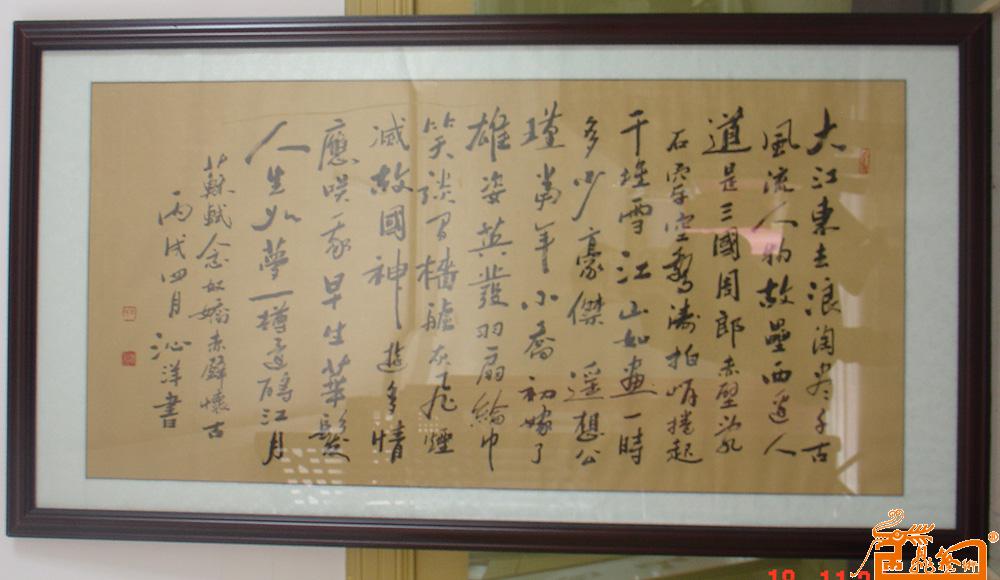 大江東去浪淘盡千古
風流人物故壘西邊人
道是三國周郎赤壁亂
石穿空驚濤拍岸捲起
千堆雪江山如畫一時
多少豪傑遥想公
瑾當年小喬初嫁了
雄姿英發羽扇綸巾
笑談間檣艫灰飛煙
滅故國神遊多情
應咲我早生華髮
人生如夢一樽還酹江月
蘇軾念奴嬌赤壁懷古
丙戌四月沁洋書